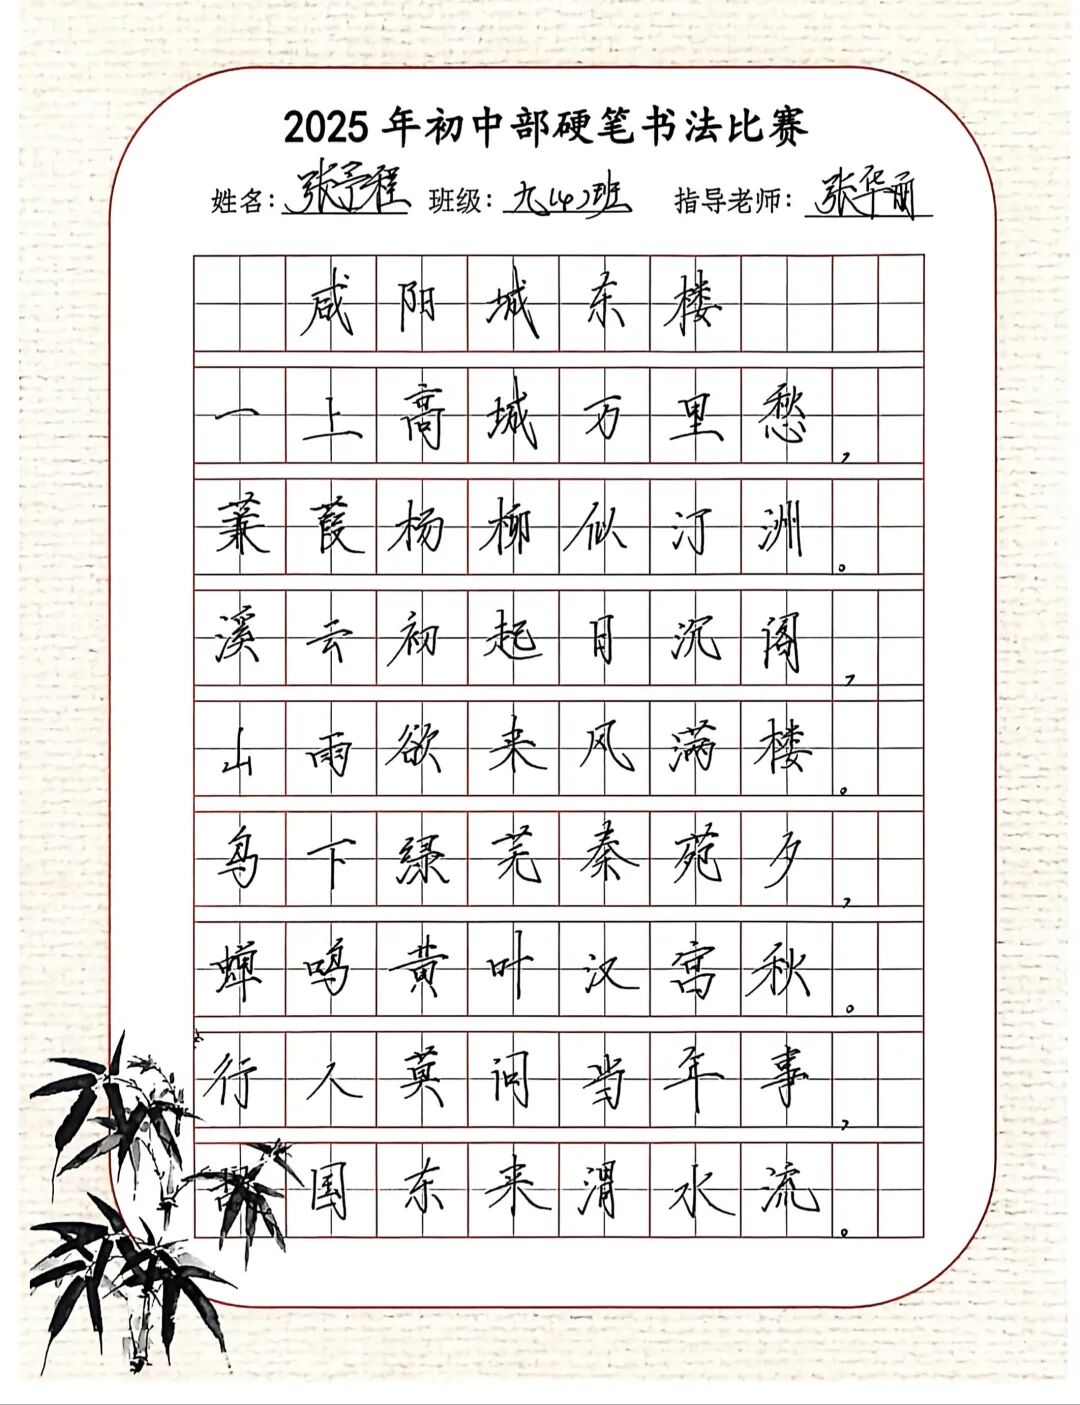 2025年初中部硬笔书法比赛
姓名：张予程 班级：九(4)班 指导老师：张华丽
咸阳城东楼
一上高城万里愁，
蒹葭杨柳似汀洲。
溪云初起日沉阁，
山雨欲来风满楼。
鸟下绿芜秦苑夕，
蝉鸣黄叶汉宫秋。
行人莫问当年事，
国东来渭水流。